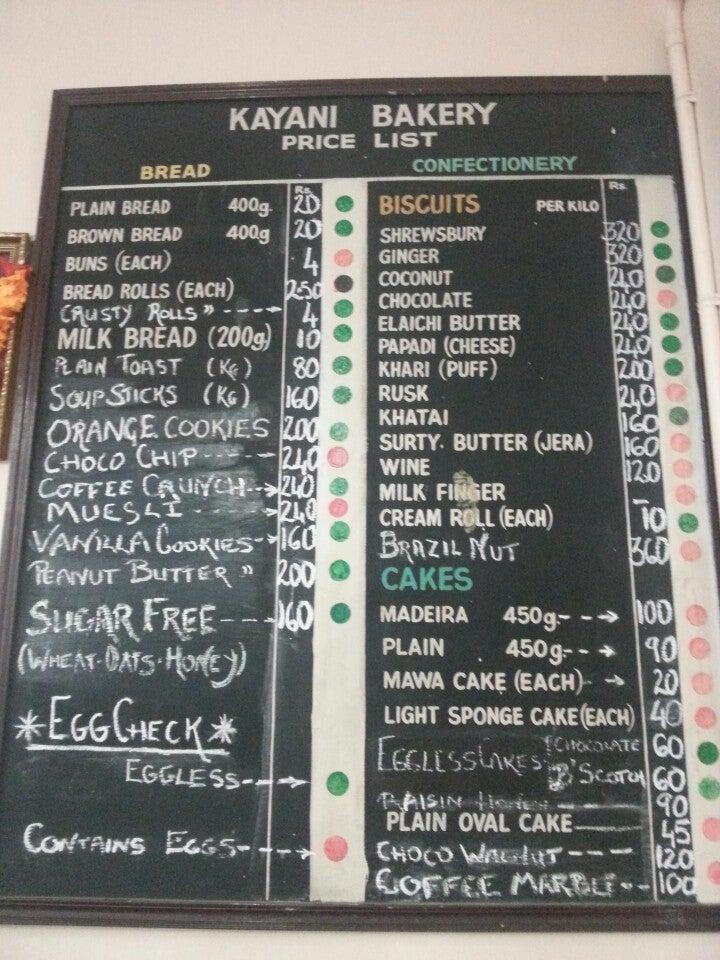 KAYANI BAKERY
PRICE LIST
BREAD
Rs.
PLAIN BREAD 400g. 20
BROWN BREAD 400g 20
BUNS (EACH) 4
BREAD ROLLS (EACH) 2.50
CRUSTY ROLLS " ---- 4
MILK BREAD (200g) 10
PLAIN TOAST (KG) 80
SOUP STICKS (KG) 160
ORANGE COOKIES 200
CHOCO CHIP --- 240
COFFEE CRUNCH--> 240
MUESLI --> 240
VANILLA COOKIES-> 160
PEANUT BUTTER " 200
SUGAR FREE ---> 160
(WHEAT-OATS-HONEY)
*EGG CHECK*
EGGLESS--->
CONTAINS EGGS--->
CONFECTIONERY
Rs.
BISCUITS PER KILO
SHREWSBURY 320
GINGER 320
COCONUT 240
CHOCOLATE 240
ELAICHI BUTTER 240
PAPADI (CHEESE) 240
KHARI (PUFF) 200
RUSK 240
KHATAI 160
SURTY. BUTTER (JERA) 160
WINE 120
MILK FINGER -
CREAM ROLL (EACH) 10
BRAZIL NUT 360
CAKES
MADEIRA 450g--> 100
PLAIN 450g--> 90
MAWA CAKE (EACH)--> 20
LIGHT SPONGE CAKE(EACH) 40
EGGLESS CAKES CHOCOLATE 60
B'SCOTCH 60
RAISIN 90
PLAIN OVAL CAKE 45
CHOCO WALNUT --- 120
COFFEE MARBLE-- 100